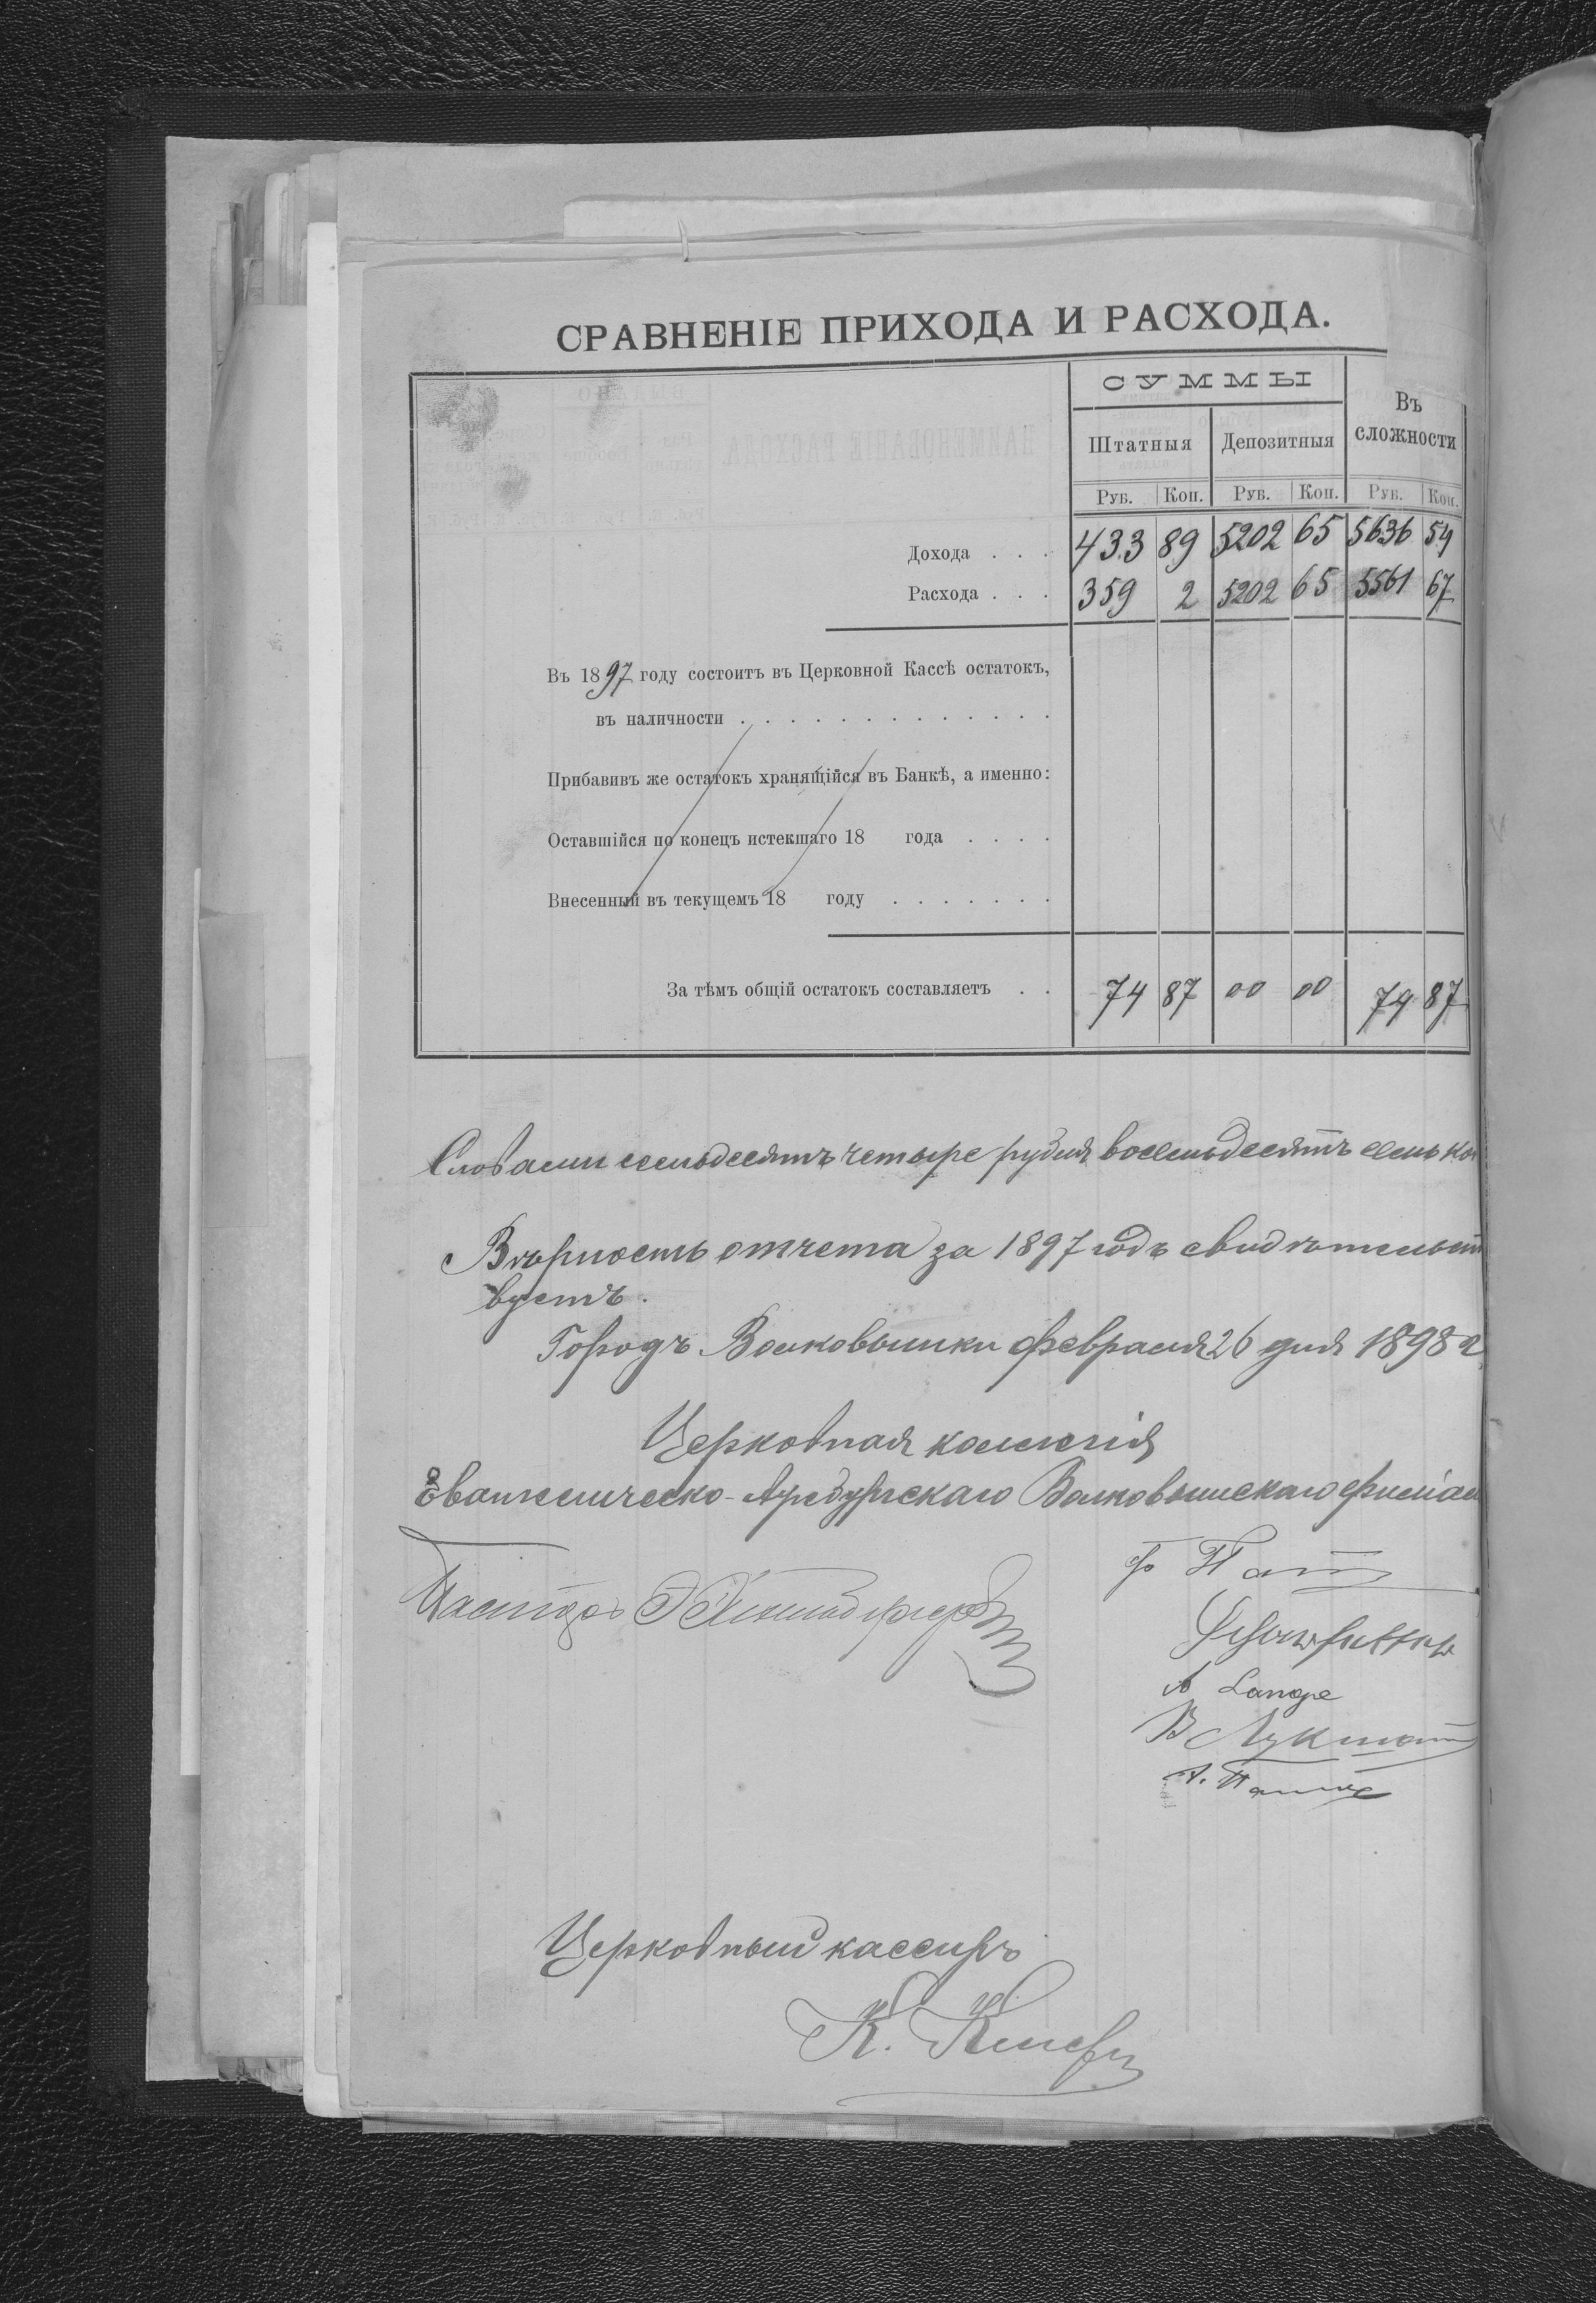 СРАВНЕНІЕ ПРИХОДА И РАСХОДА.
СУММЫ
Въ сложности
Штатныя Депозитныя
Руб. Коп. Руб. Коп. Руб. Коп.
Дохода . . . 433 89 5202 65 5636 54
Расхода . . . 359 2 5202 65 5561 67
Въ 1897 году состоитъ въ Церковной Кассѣ остатокъ,
въ наличности . . . . . . . . . . . . .
Прибавивъ же остатокъ хранящійся въ Банкѣ, а именно:
Оставшійся по конецъ истекшаго 18 года . . . .
Внесенный въ текущемъ 18 году . . . . . . .
За тѣмъ общій остатокъ составляетъ . . 74 87 00 00 74 87
Словами семьдесятъ четыре рубля восемьдесятъ семь ко
Вѣрность отчета за 1897 годъ свидѣтельст
вуетъ.
Городъ Волковышки февраля 26 дня 1898 г.
Церковная коллегія
Евангелическо-Аугсбургскаго Волковышскаго филіал
Пасторъ
A Lange
Церковный кассиръ
К.